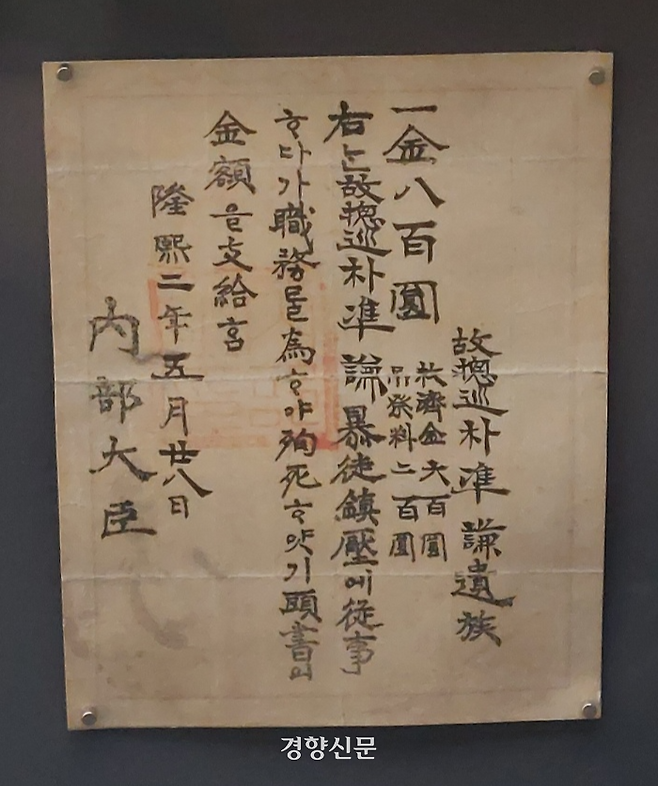 故摠巡朴準謙遺族
一金八百圓
救濟金六百圓
吊祭料二百圓
右는故摠巡朴準謙暴徒鎭壓에從事
ᄒᆞ다가職務를爲ᄒᆞ야殉死ᄒᆞ얏기頭書의
金額을支給홈
隆熙二年五月廿八日
內部大臣
경향신문